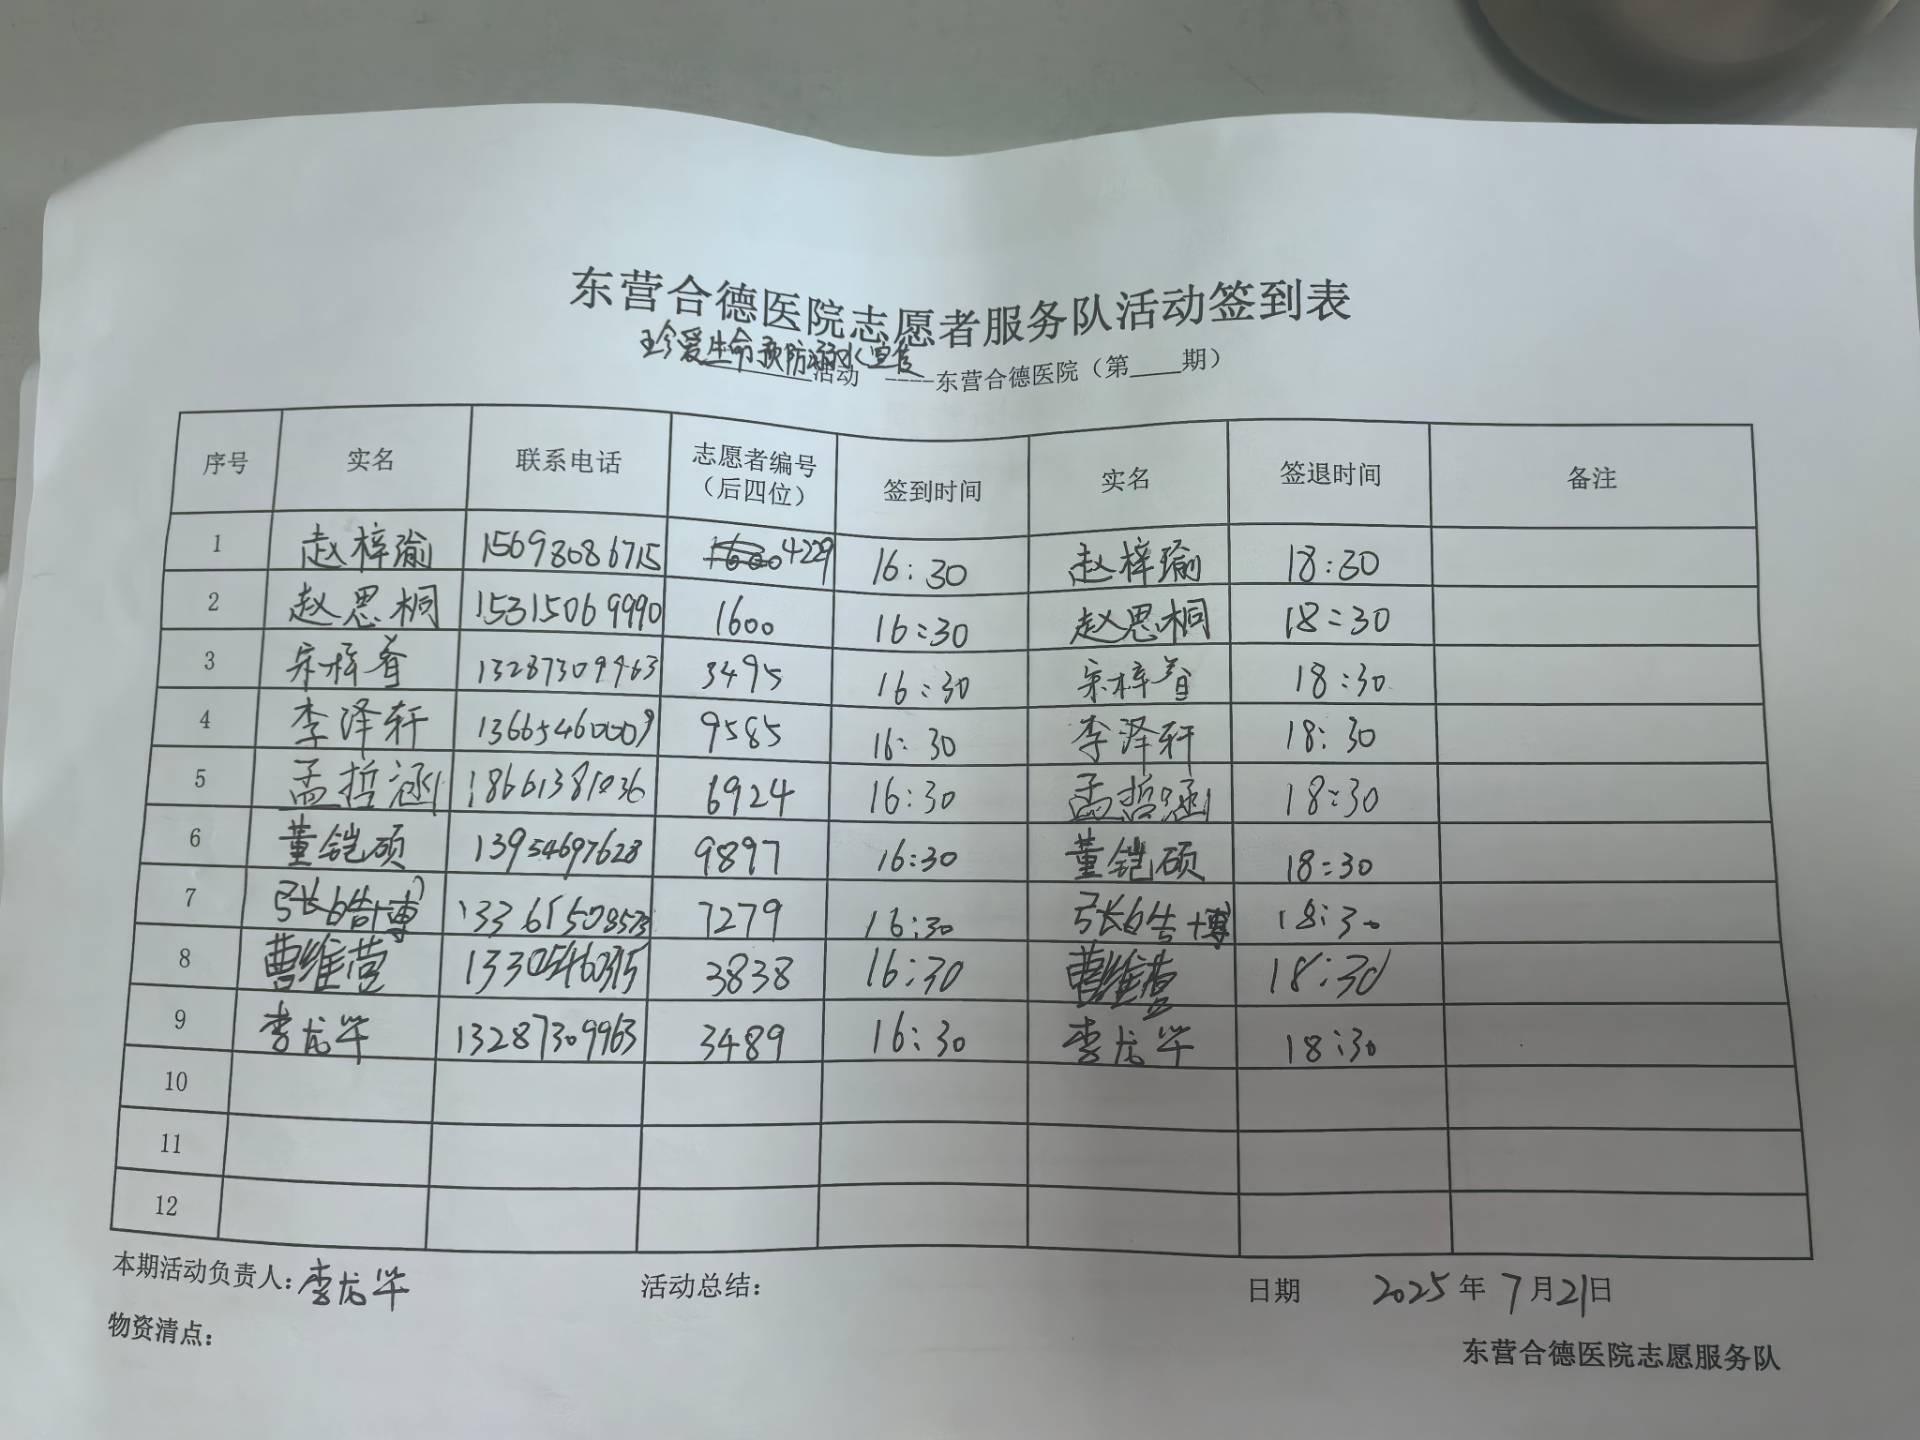 东营合德医院志愿者服务队活动签到表
珍爱生命预防溺水宣传活动 ----东营合德医院（第____期）
序号 实名 联系电话 志愿者编号（后四位） 签到时间 实名 签退时间 备注
1 赵梓瑜 15698086715 4229 16:30 赵梓瑜 18:30
2 赵思桐 15315069990 1600 16:30 赵思桐 18:30
3 宋梓 13287309963 3495 16:30 宋梓 18:30
4 李泽轩 13665460009 9585 16:30 李泽轩 18:30
5 孟哲涵 18661381036 6924 16:30 孟哲涵 18:30
6 董铠硕 13954697628 9897 16:30 董铠硕 18:30
7 张皓博 7279 16:30 张皓博 18:30
8 曹维营 13305460315 3838 16:30 曹维营 18:30
9 李龙华 13287309963 3489 16:30 李龙华 18:30
10
11
12
本期活动负责人：李龙华 活动总结： 日期 2025年7月21日
物资清点：
东营合德医院志愿服务队